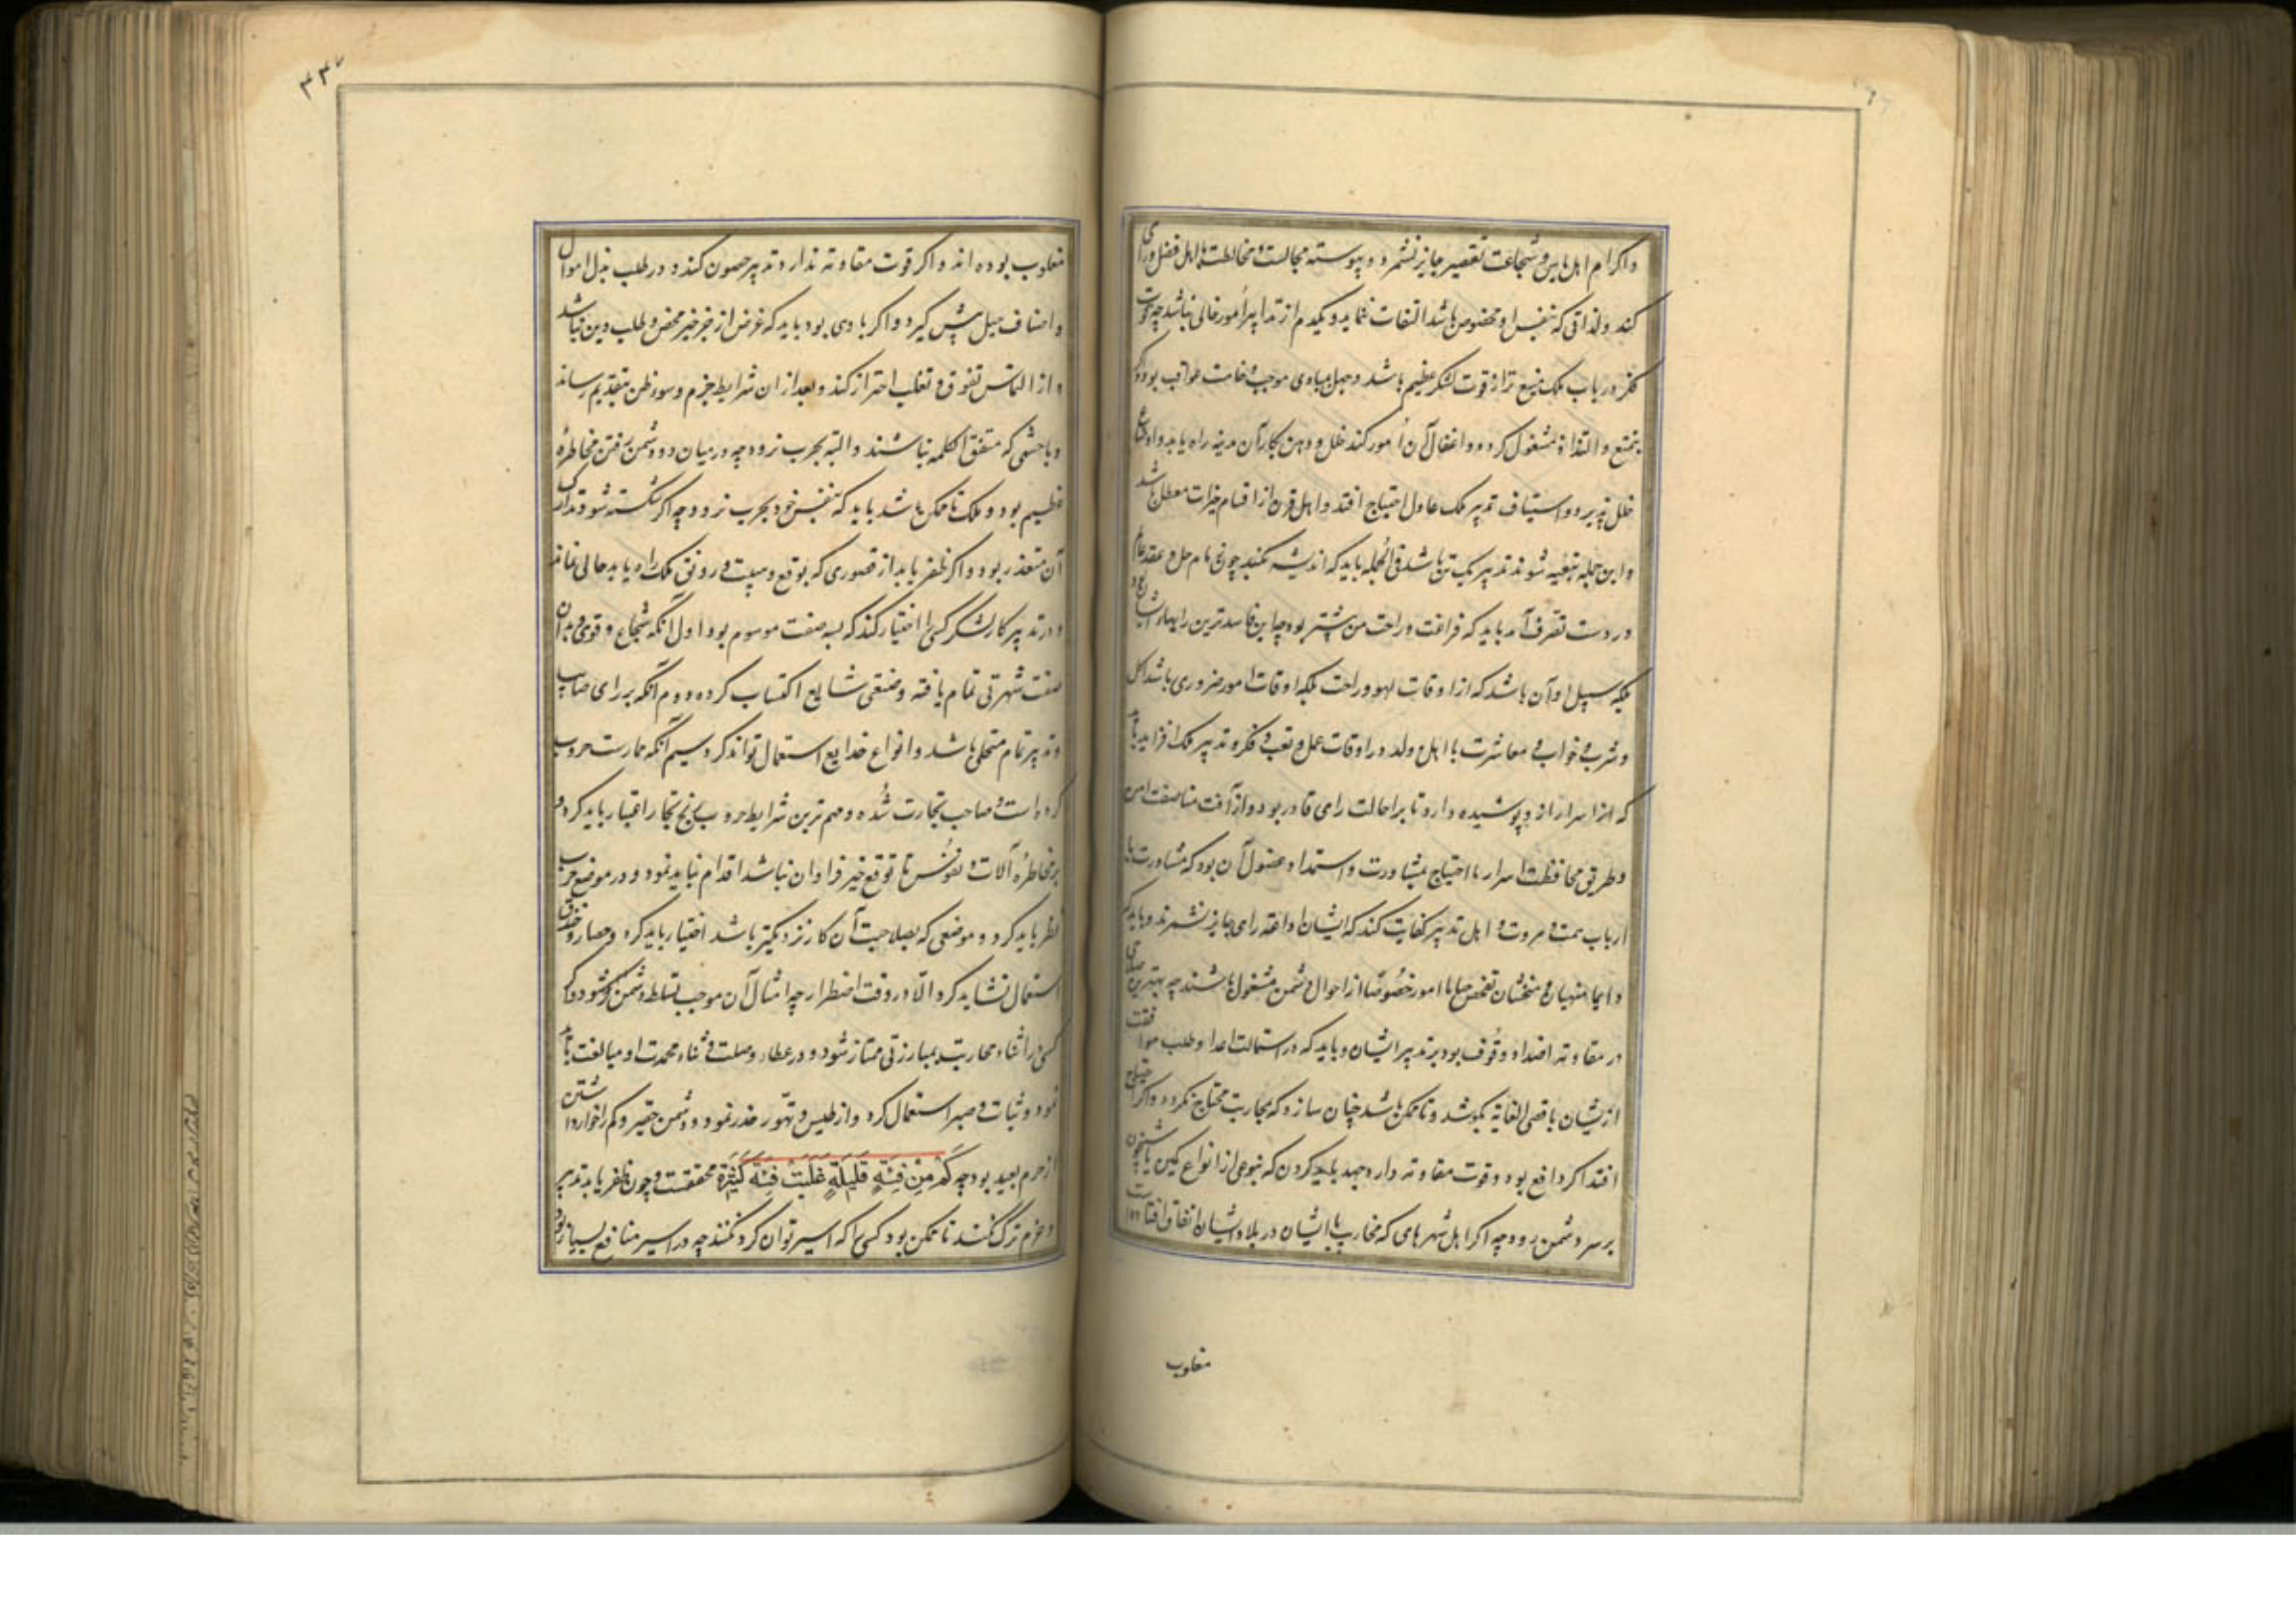 واکرام اهل باس و شجاعت تقصیر جایز نشمرد و پیوسته مجالست و مخالطت با اهل فضل ورای
کند و لذاتی که بنفس او مخصوص باشد التفات ننماید و یکدم از تدابیر امور خالی نباشد چه قوت
فکر در باب ملک منیع تر از قوت لشکر عظیم باشد و جهل مبادی موجب وخامت عواقب بود واگر
بتمتع و التذاذ مشغول کردد و اغفال آن امور کند خلل و وهن بکار آن مدینه راه یابد و اوضاع
خلل پذیرد و استیناف تدبیر ملک عادل احتیاج افتد و اهل قرن از اقسام خیرات معطل باشد
و این جمله تبعیه شوند تدبیر یک تن باشد فی الجمله باید که اندیشه نکند چون زمام حل و عقد عالم
در دست تصرف آمد باید که فراغت و راحت من بیشتر بود چه این فاسد ترین رایها
بلکه سبیل او آن باشد که از اوقات لهو و راحت بلکه اوقات امور ضروری باشد اکل
و شرب و خواب و معاشرت با اهل و ولد در اوقات عمل و تعب و فکر و تدبیر ملک افزاید باید
که اسرار از او پوشیده دارد تا بر احالت رای قادر بود و از آفت مناصفت امن
و طریق محافظت اسرار با احتیاج بمشاورت و استمداد عقول آن بود که مشاورت با
ارباب همت و مروت و اهل تدبیر کفایت کند که ایشان اذاعه رای جایز نشمرند و باید که
دایما منهیان و متفحشان بتفحص خبایا امور خصوصا از احوال دشمن مشغول باشند چه بهترین
در مقاومه اضداد وقوف بود بر تدبیر ایشان و باید که در استمالت اعدا و طلب موافقت
از یشان باقصی الغایه بکوشد و تا ممکن باشد چنان سازد که بمحاربت محتاج نکردد و اگر احتیاج
افتد اگر دافع بود و قوت مقاومه دارد جهد باید کردن که بنوعی از انواع کمین یا شبیخون
بر سر دشمن رود چه اکر اهل شهرهای که محارب با ایشان در بلاد ایشان اتفاق افتاده است
مغلوب
۴۴۷
مغلوب بوده اند و اکر قوت مقاومه ندارد تدبیر حصون کند و در طلب بذل اموال
و اصناف حیل پیش گیرد و اکر بادی بود باید که غرض از جز خیر محض و طلب دین نباشد
و از التماس تفوق و تغلب احتراز کند و بعد از ان شرایط حزم و سوء ظن بتقدیم رساند
و با حشمی که متفق الکلمه نباشند و البته بحرب نرود چه در میان دو دشمن رفتن مخاطره
عظیم بود و ملک تا ممکن باشد باید که بنفس خود بحرب نرود چه اکر شکسته شود تدارک
آن متعذر بود و اکر ظفر یابد از قصوری که بوقع و هیبت و رونق ملک راه یابد خالی نماند
و در تدبیر کار لشکر کسی را اختیار کند که بسه صفت موسوم بود اول آنکه شجاع و قوی دل و بدان
صفت شهرتی تمام یافته و صیتی شایع اکتساب کرده دوم آنکه برای صایب
و تدبیر تمام متحلی باشد و انواع خدایع استعمال تواند کرد سیم آنکه ممارست حروب
کرده است و صاحب تجارت شده و مهم ترین شرایط حروب تجار را اعتبار باید کرد و
بر مخاطره آلات و نفوس تا توقع خیر فراوان نباشد اقدام نباید نمود و در موضع حرب
نظر باید کرد و موضعی که بصلاحیت آن کار نزدیکتر باشد اختیار باید کرد و حصار و خندق
استعمال نشاید کرد الا در وقت اضطرار چه امثال آن موجب تسلط دشمن شود و اگر
کسی در اثناء محاربت بمبارزتی ممتاز شود در عطا و صلت و ثناء محمدت او مبالغت باید
نمود و ثبات و صبر استعمال کرد و از طیش و تهور حذر نمود و دشمن حقیر و کم را خوار داشتن
از حزم بعید بود چه کَمْ مِنْ فِئَةٍ قَلِیلَةٍ غَلَبَتْ فِئَةً کَثِیرَةً محققست و چون ظفر یابد تدبیر
و حزم ترک نکند تا ممکن بود کسی را که اسیر توان کرد نکشد چه در اسیر منافع بسیار بود